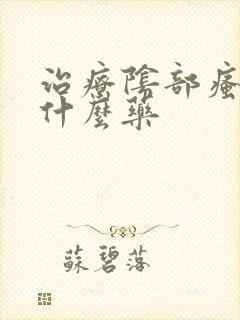 治療陰部瘙
什麼藥
蘇碧落